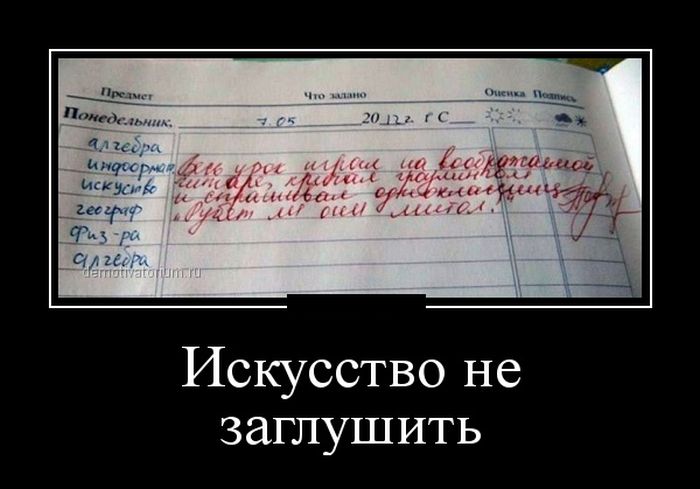 Предмет Что задано Оценка Подпись
Понедельник, 7.05 2012 г С
алгебра
информат
искусство
географ
Физ-ра
алгебра
Весь урок играл на воображаемой
гитаре, кричал гроулингом
и спрашивал одноклассниц
"Будет ли оген митол!"
demotivatorium.ru
Искусство не
заглушить